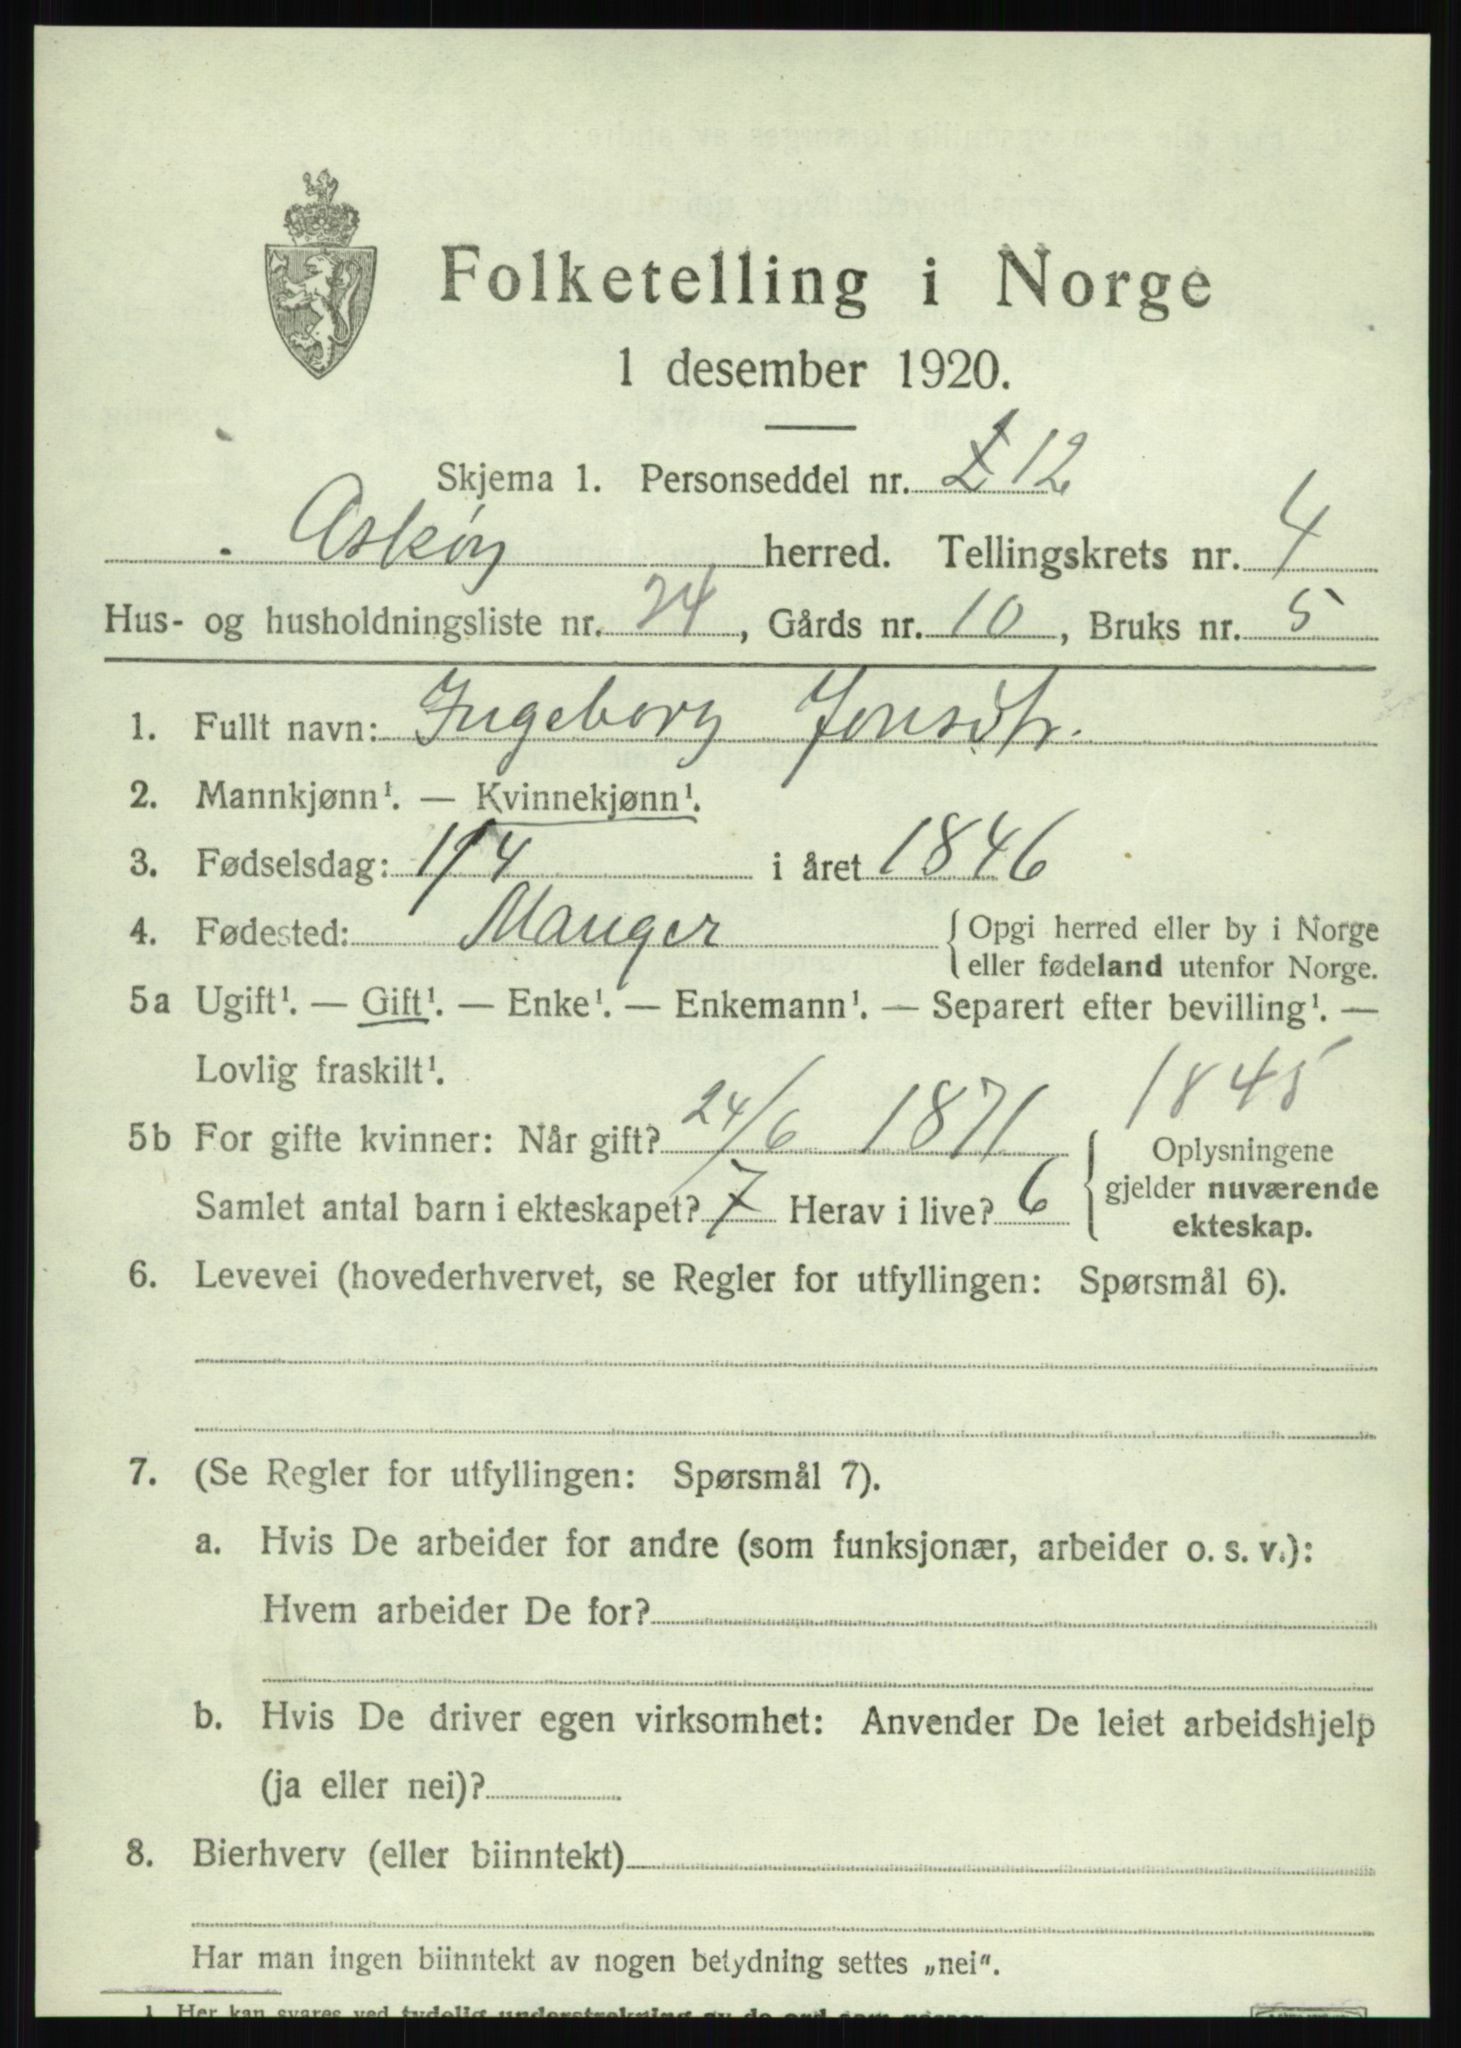 Folketelling i Norge
1 desember 1920.
Skjema 1. Personseddel nr. 12
Askøy herred. Tellingskrets nr. 4
Hus- og husholdningsliste nr. 24, Gårds nr. 10, Bruks nr. 5
1. Fullt navn: Ingeborg Jonsdtr.
2. Mannkjønn¹. — Kvinnekjønn¹.
3. Fødselsdag: 1/4 i året 1846
4. Fødested: Manger {Opgi herred eller by i Norge
eller fødeland utenfor Norge.
5a Ugift¹. — Gift¹. — Enke¹. — Enkemann¹. — Separert efter bevilling¹. —
Lovlig fraskilt¹.
1845
5b For gifte kvinner: Når gift? 24/6 1871 {Oplysningene
gjelder nuværende
ekteskap.
Samlet antal barn i ekteskapet? 7 Herav i live? 6
6. Levevei (hovederhvervet, se Regler for utfyllingen: Spørsmål 6).
7. (Se Regler for utfyllingen: Spørsmål 7).
a. Hvis De arbeider for andre (som funksjonær, arbeider o. s. v.):
Hvem arbeider De for?
b. Hvis De driver egen virksomhet: Anvender De leiet arbeidshjelp
(ja eller nei)?
8. Bierhverv (eller biinntekt)
Har man ingen biinntekt av nogen betydning settes „nei".
1 Her kan svares ved tydelig understrekning av de ord som passer.